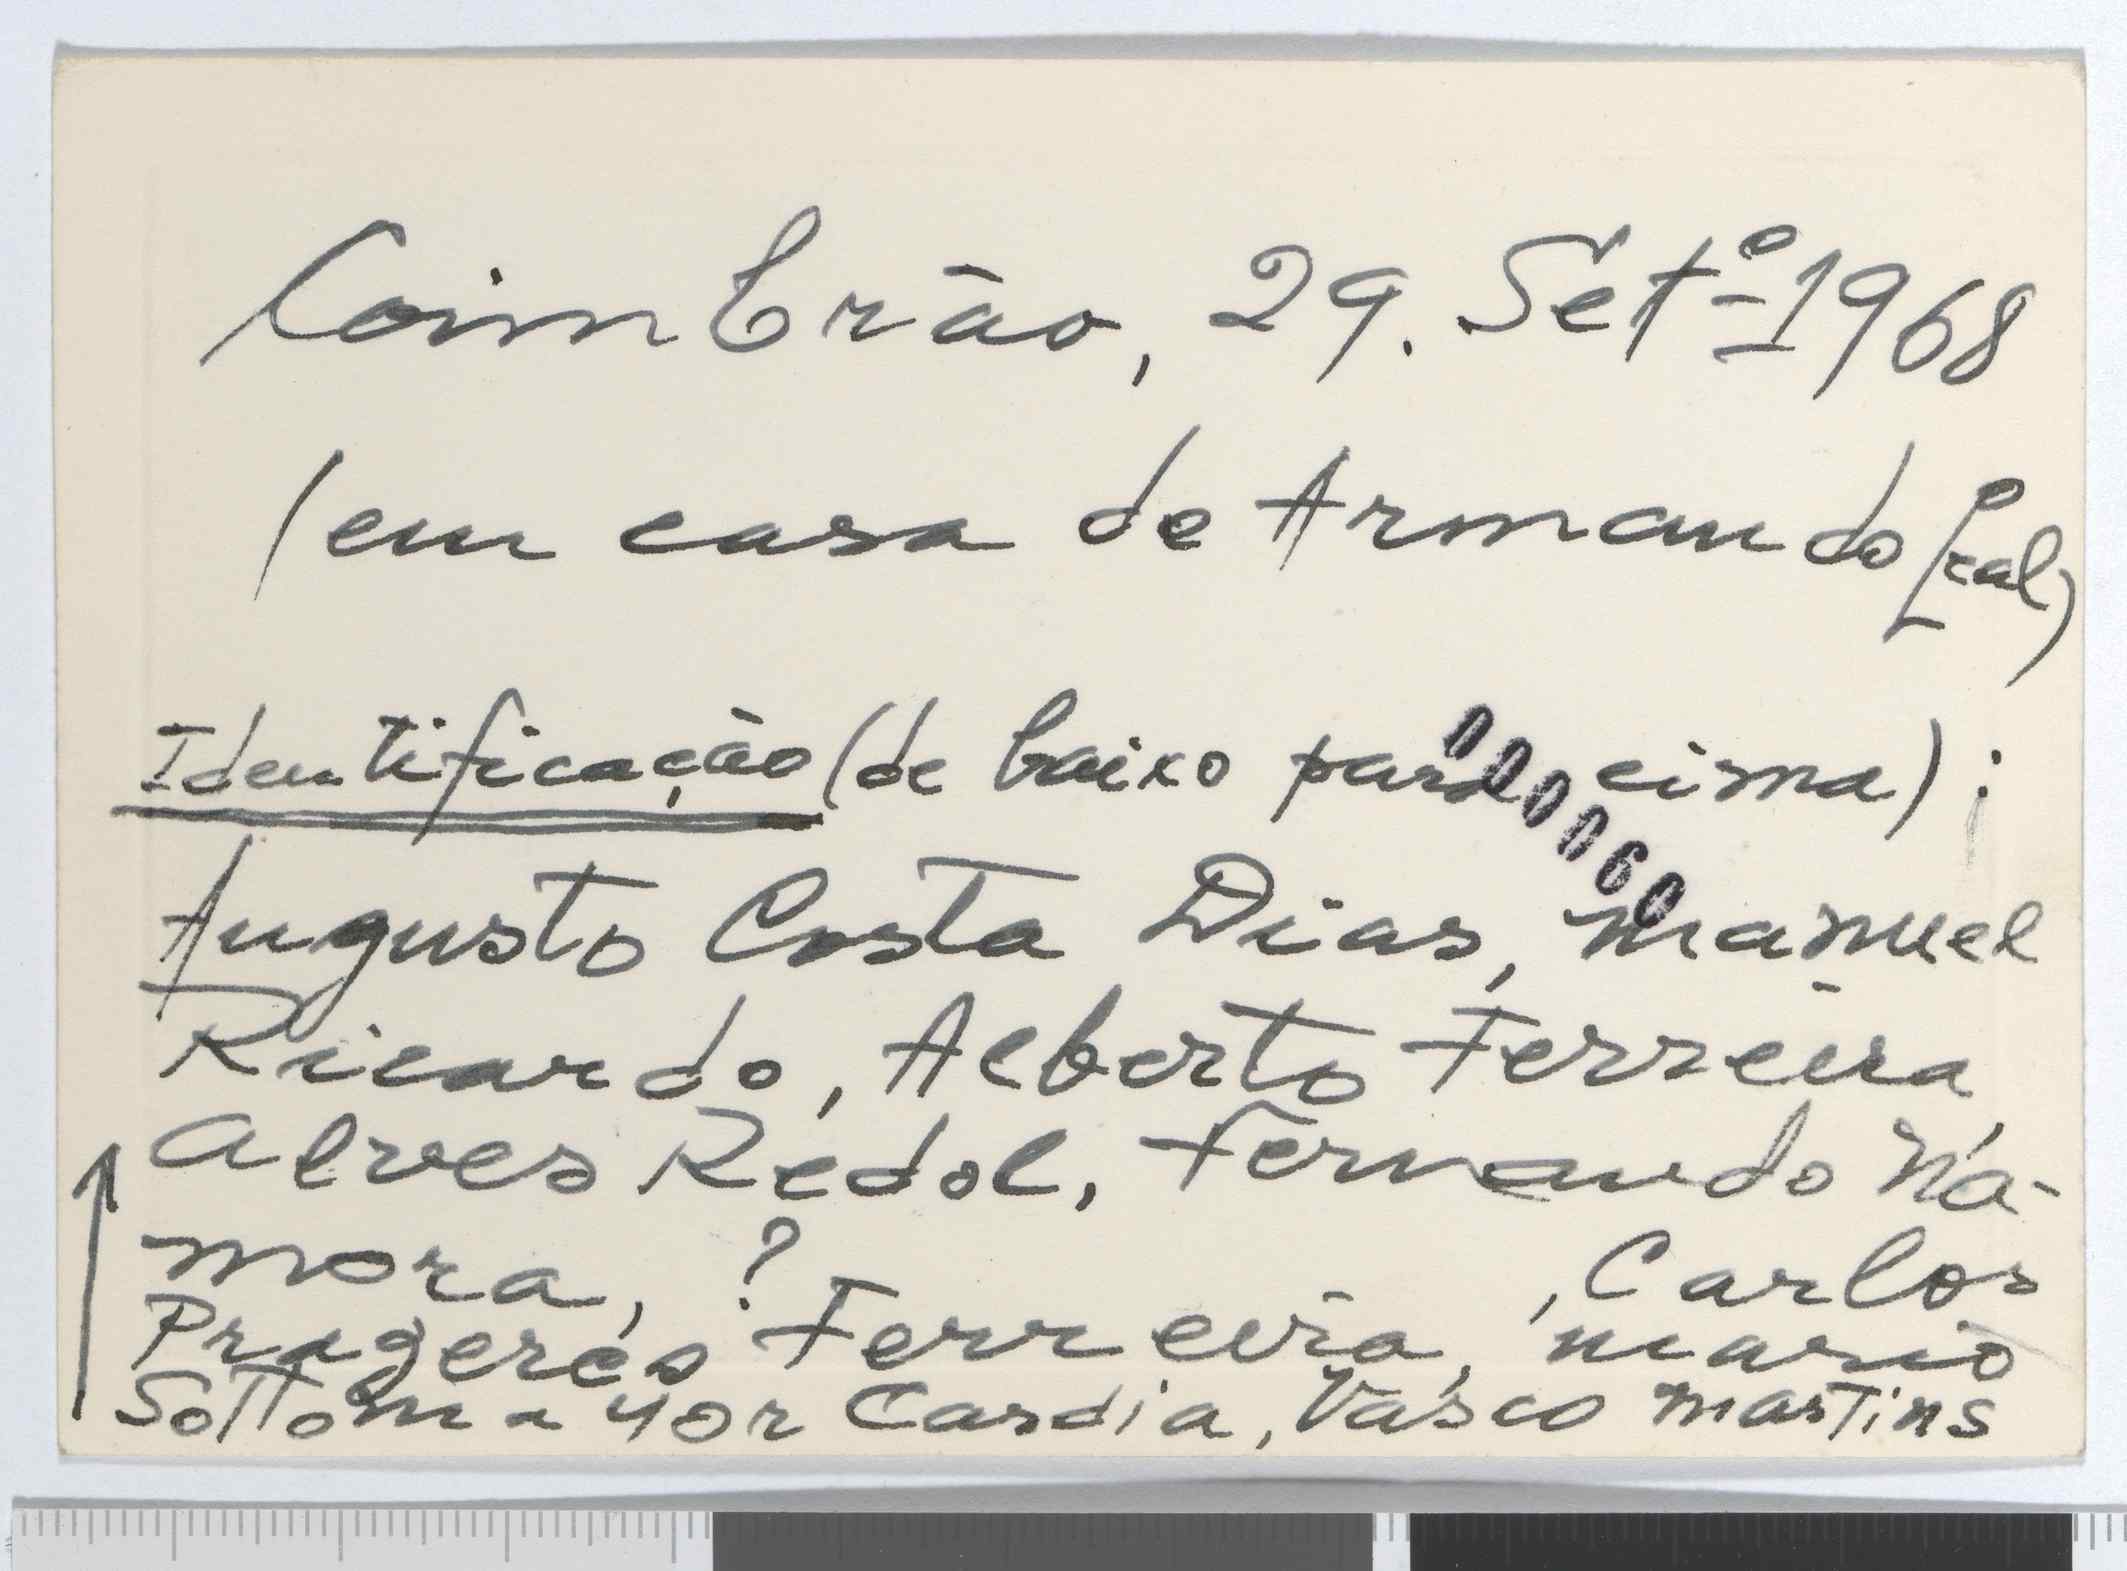 Coimbrão, 29. Setº-1968
(em casa de Armando
Identificação (de baixo para cima):
000060
Augusto Costa Dias, Manuel
Ricardo, Alberto Ferreira
Alves Redol, Fernando Na-
mora, ? , Carlos
Ferreira, Mario
Sottomayor Cardia, Vasco Martins